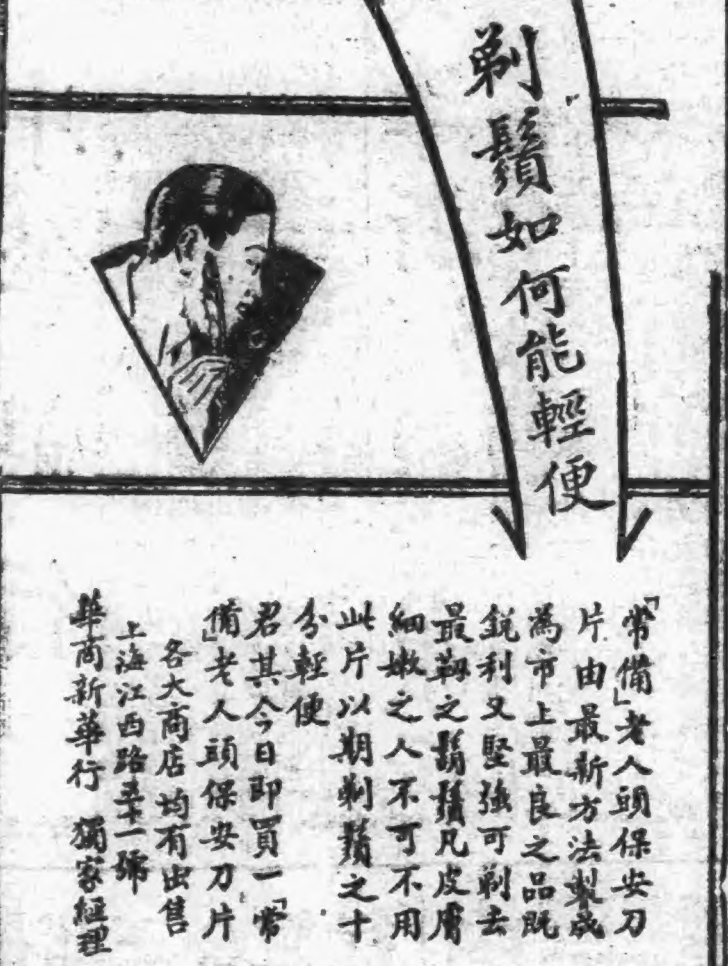 剃鬚如何能輕便
「常備」老人頭保安刀
片由最新方法製成
為市上最良之品既
銳利又堅強可剃去
最韌之鬍鬚凡皮膚
細嫩之人不可不用
此片以期剃鬚之十
分輕便
君其今日即買一「常
備」老人頭保安刀片
各大商店均有出售
上海江西路五十一號
華商新華行 獨家經理